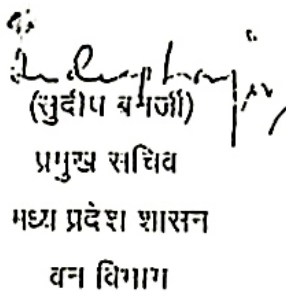 (सुदीप बनर्जी)
प्रमुख सचिव
मध्य प्रदेश शासन
वन विभाग